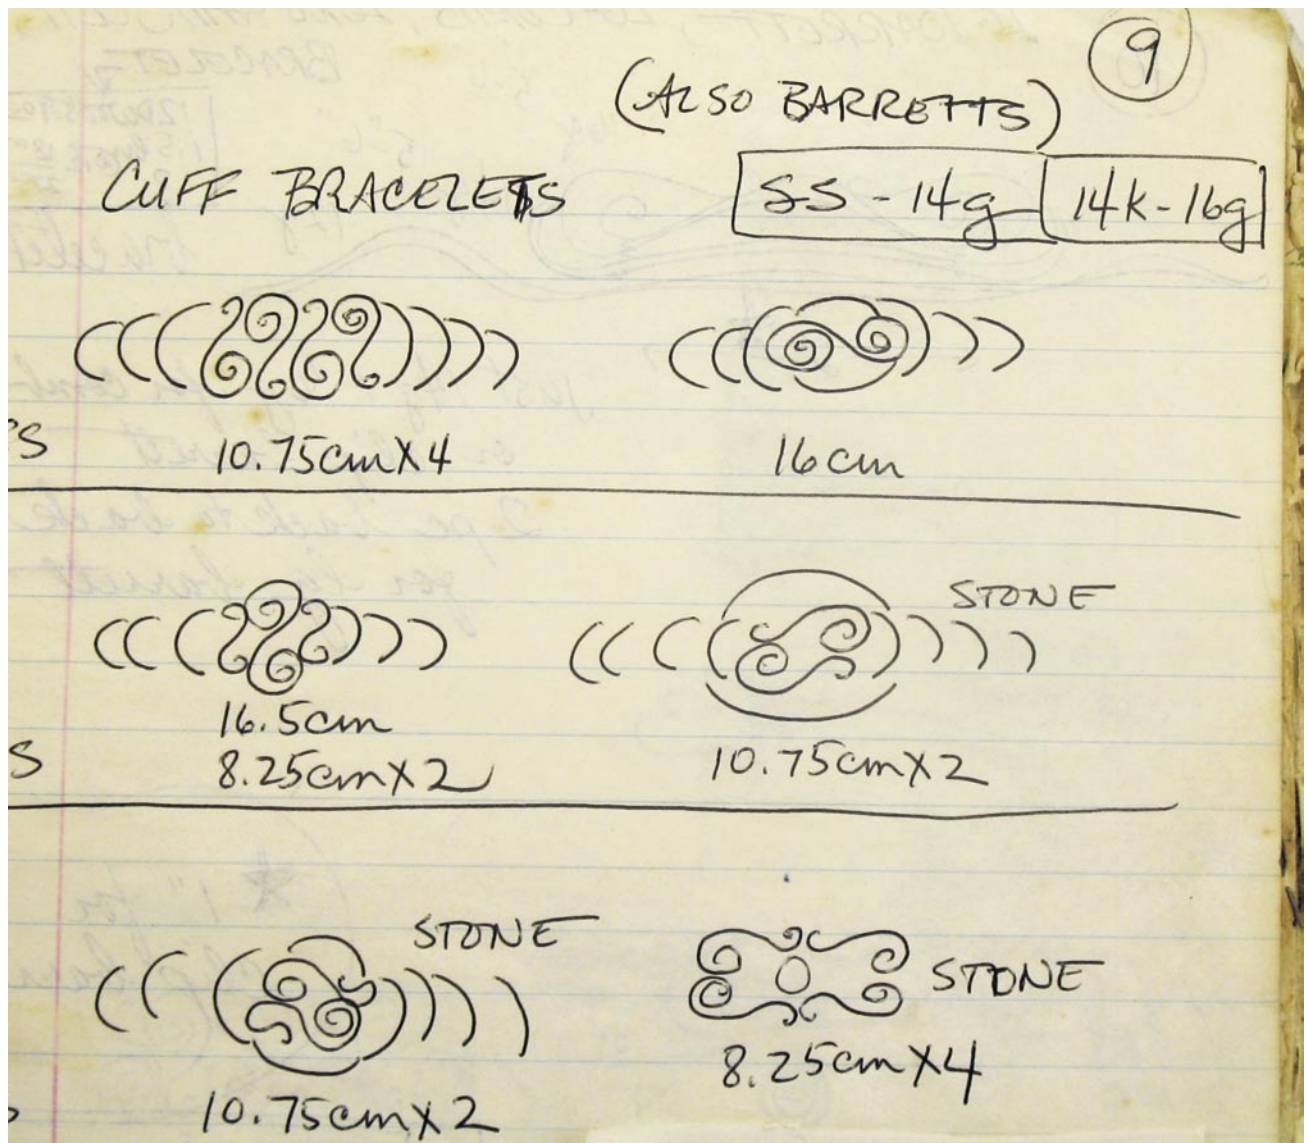 9
(ALSO BARRETTS)
CUFF BRACELETS
SS - 14g 14K - 16g
10.75cm X 4 16cm
STONE
16.5cm
8.25cm X 2 10.75cm X 2
STONE
STONE
8.25cm X 4
10.75cm X 2